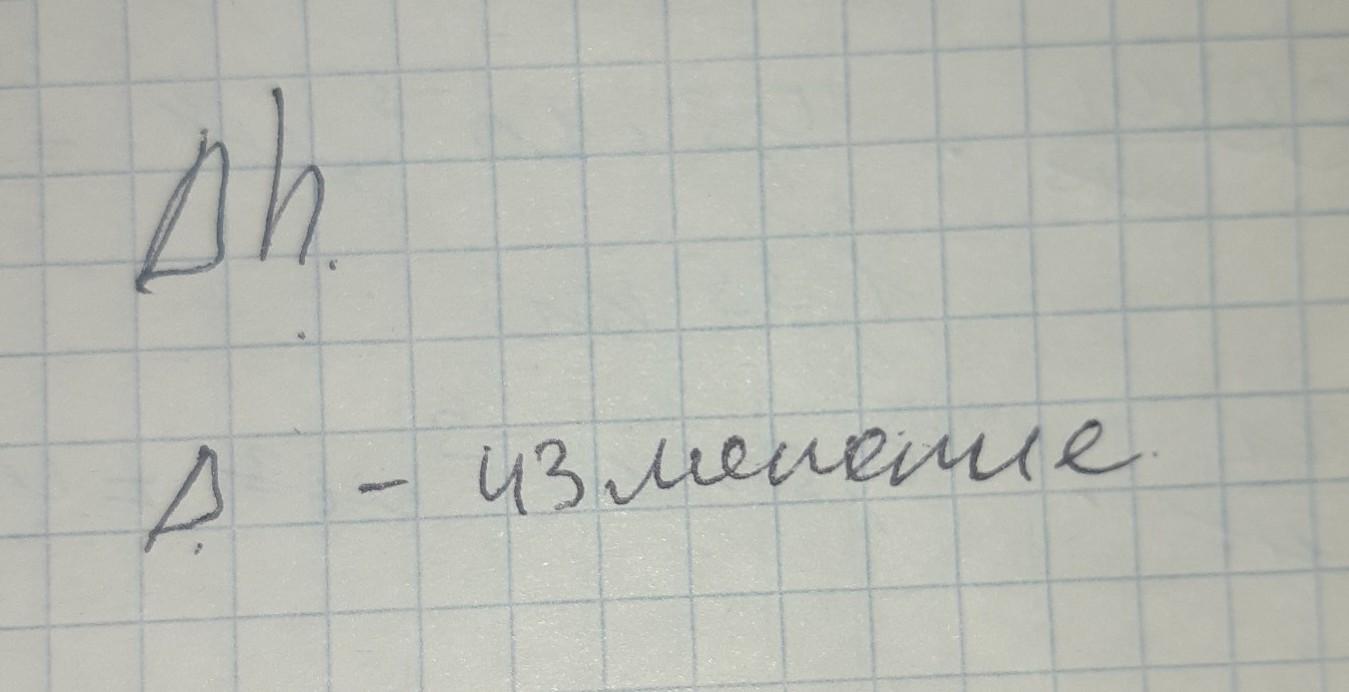 Δh.
Δ - изменение.